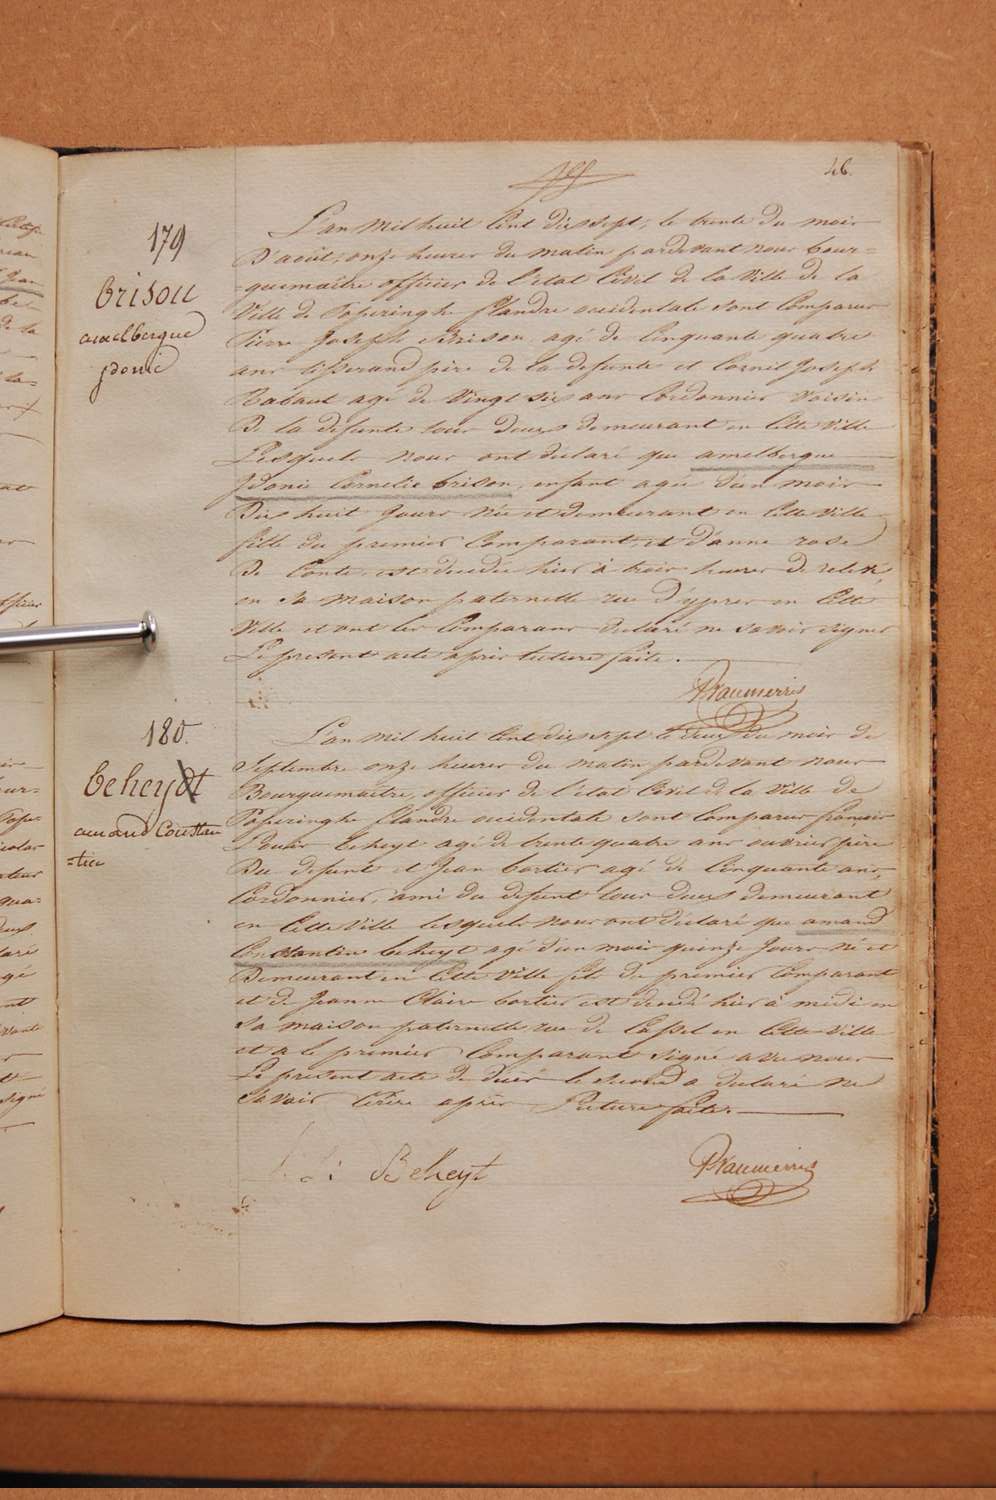 46.
179
Brison
amelbergue
jdonie
L'an Mil huit Cent dix sept, le trente du mois
D'août, onze heures du matin pardevant nous bour-
-guemaitre officier de l'état Civil de la Ville de la
Ville de Poperinghe flandre occidentale sont Comparus
Pierre Joseph Brison, agé de Cinquante quatre
ans tisserand père de la defunte et Cornil Joseph
agé de Vingt six ans Cordonnier Voisin
De la defunte tous deux demeurant en Cette Ville
Lesquels nous ont déclaré que amelbergue
jdonie Cornelie brison, enfant agée d'un mois
Dix huit Jours née et demeurant en Cette Ville
fille du premier Comparant, et d'anne rose
De Conte, est decedée hier à trois heures de
en Sa maison paternelle rue d'ypres en Cette
Ville et ont les Comparans declaré ne savoir Signer
Le present acte après lecture faite.
180.
beheydt
amand Constan
-tin
L'an Mil huit Cent dix sept le deux du mois de
Septembre onze heures du matin pardevant nous
Bourguemaitre, officier de l'état Civil de la Ville de
Poperinghe flandre occidentale sont Comparus françois
beheyt agé de trente quatre ans ouvrier père
Du defunt et Jean bortier agé de Cinquante ans,
Cordonnier, ami du defunt tous deux demeurant
en Cette Ville lesquels nous ont declaré que amand
Constantin beheyt agé d'un mois quinze Jours né et
Demeurant en Cette Ville fils du premier Comparant
et de Jeanne Claire bortier est decedé hier à midi en
Sa maison paternelle, rue de Cassel en Cette Ville
et a le premier Comparant Signé avec nous
Le present acte de decès le second a declaré ne
Savoir écrire après Lecture faite.
Beheyt